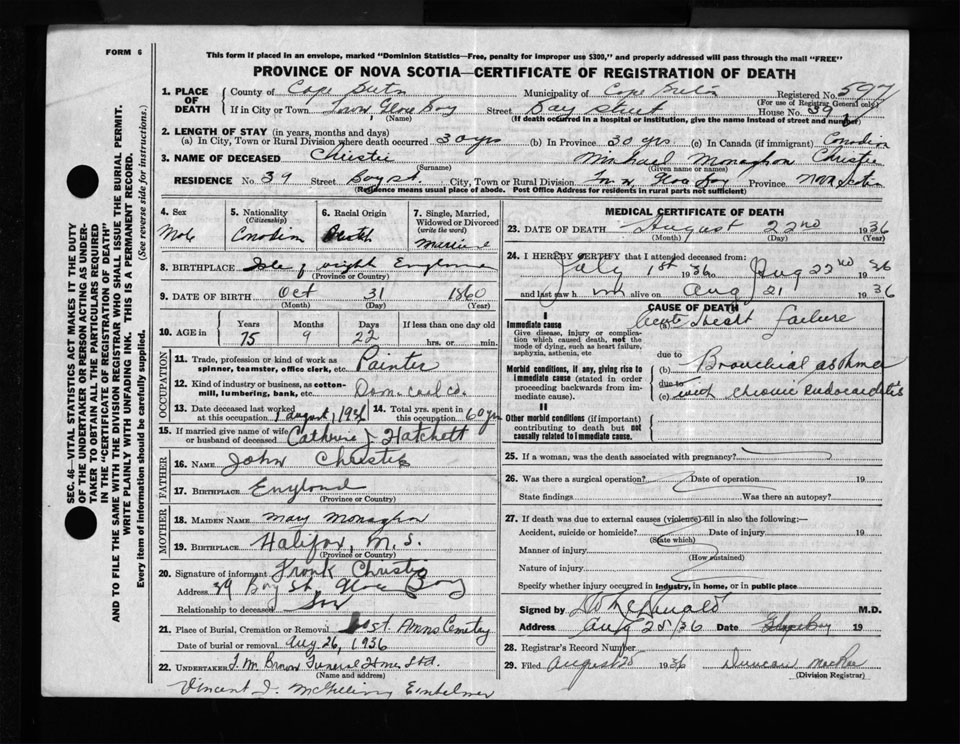 FORM 6
This form if placed in an envelope, marked "Dominion Statistics—Free, penalty for improper use $300," and properly addressed will pass through the mail "FREE"
PROVINCE OF NOVA SCOTIA—CERTIFICATE OF REGISTRATION OF DEATH
SEC. 46—VITAL STATISTICS ACT MAKES IT THE DUTY
OF THE UNDERTAKER OR PERSON ACTING AS UNDER-
TAKER TO OBTAIN ALL THE PARTICULARS REQUIRED
IN THE "CERTIFICATE OF REGISTRATION OF DEATH"
AND TO FILE THE SAME WITH THE DIVISION REGISTRAR WHO SHALL ISSUE THE BURIAL PERMIT.
WRITE PLAINLY WITH UNFADING INK. THIS IS A PERMANENT RECORD.
Every item of information should be carefully supplied. (See reverse side for instructions.)
1. PLACE OF DEATH County of Cape Breton Municipality of Cape Breton Registered No. 597
(For use of Registrar General only)
If in City or Town Town, Glace Bay Street Bay Street House No. 39
(Name) (If death occurred in a hospital or institution, give the name instead of street and number)
2. LENGTH OF STAY (in years, months and days)
(a) In City, Town or Rural Division where death occurred 30 yrs (b) In Province 30 yrs. (c) In Canada (if immigrant) Canadian
3. NAME OF DECEASED Christie Michael Monaghan Christie
(Surname) (Given name or names)
RESIDENCE No. 39 Street Bay st. City, Town or Rural Division Town, Glace Bay Province Nova Scotia
(Residence means usual place of abode. Post Office Address for residents in rural parts not sufficient)
4. Sex
Male
5. Nationality
(Citizenship)
Canadian
6. Racial Origin
7. Single, Married, Widowed or Divorced
(write the word)
8. BIRTHPLACE Isle of wight England
(Province or Country)
9. DATE OF BIRTH Oct 31 1860
(Month) (Day) (Year)
10. AGE in Years Months Days If less than one day
75 9 22 hrs. or min.
OCCUPATION
11. Trade, profession or kind of work as spinner, teamster, office clerk, etc. Painter
12. Kind of industry or business, as cotton-mill, lumbering, bank, etc. Dom. coal co.
13. Date deceased last worked at this occupation 1 august 1936 14. Total yrs. spent in this occupation 60 yrs
15. If married give name of wife or husband of deceased Cathrine J. Hatchett
FATHER
16. NAME John Christie
17. BIRTHPLACE England
(Province or Country)
MOTHER
18. MAIDEN NAME Mary Monaghan
19. BIRTHPLACE Halifax, N.S.
(Province or Country)
20. Signature of informant Frank Christie
Address 39 Bay St. Glace Bay
Relationship to deceased Son
21. Place of Burial, Cremation or Removal St. Anns Cemetay
Date of burial or removal Aug 26, 1936
22. UNDERTAKER T. M. Brown Funeral Home Ltd.
(Name and address)
Vincent J.
MEDICAL CERTIFICATE OF DEATH
23. DATE OF DEATH August 22nd 1936
(Month) (Day) (Year)
24. I HEREBY CERTIFY that I attended deceased from:
July 1st 1936 to Aug 22nd 36
and last saw him alive on Aug 21 1936
CAUSE OF DEATH
I
Immediate cause
Give disease, injury or complication which caused death, not the mode of dying, such as heart failure, asphyxia, asthenia, etc
(a) Acute Heart failure
due to
Morbid conditions, if any, giving rise to immediate cause (stated in order proceeding backwards from immediate cause).
(b) Bronchial asthma
due to
(c) with chronic Endocarditis
II
Other morbid conditions (if important) contributing to death but not causally related to immediate cause.
25. If a woman, was the death associated with pregnancy?
26. Was there a surgical operation? Date of operation 19
State findings Was there an autopsy?
27. If death was due to external causes (violence) fill in also the following:—
Accident, suicide or homicide? Date of injury 19
(State which)
Manner of injury
(How sustained)
Nature of injury
Specify whether injury occurred in industry, in home, or in public place
Signed by McDonald M.D.
Address Aug 25/36 Date Glace Bay 19
28. Registrar's Record Number
29. Filed August 25 1936 Duncan MacRae
(Division Registrar)